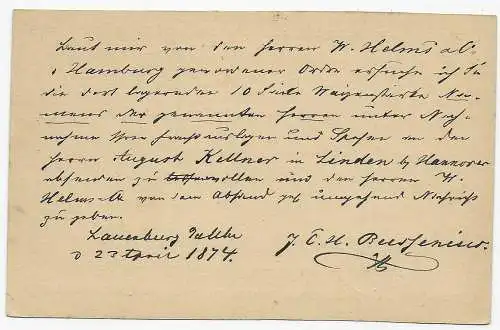 Laut mir von den Herren W. Helms & C.
Hamburg gewordener Ordre ersuche ich Sie
die dort lagernden 10 Kiste Waizenstärke Na-
mens der genannten Herren unter Nach-
nahme Ihrer Frachtauslagen und Spesen an den
Herrn August Kellner in Linden b/ Hannover
absenden zu wollen und den Herren W.
Helms & C. von dem Absand gef. umgehend Nachricht
zu geben.
Lauenburg a/Elbe
d 23 April 1874.
J. C. H. Bussenius.